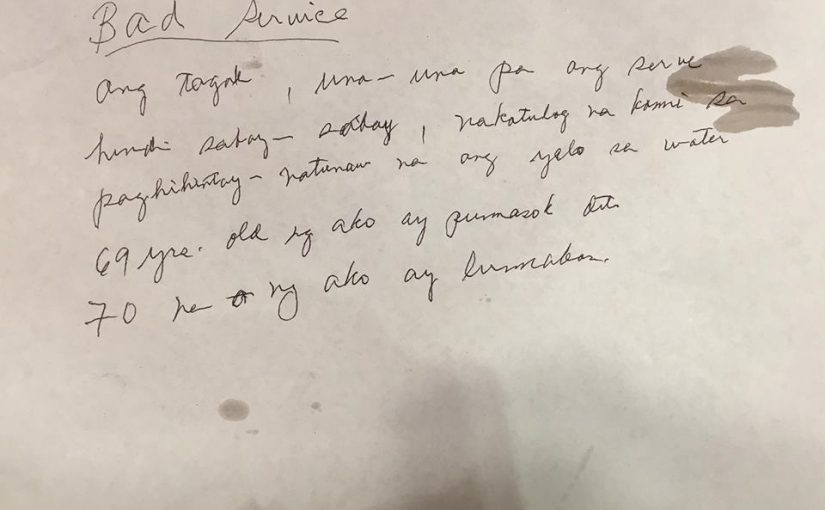 Bad Service
ang tagal, una-una pa ang serve
hindi sabay-sabay, nakatulog na kami sa
paghihintay-natunaw na ang yelo sa water
69 yrs. old ng ako ay pumasok dito
70 na ng ako ay lumabas.